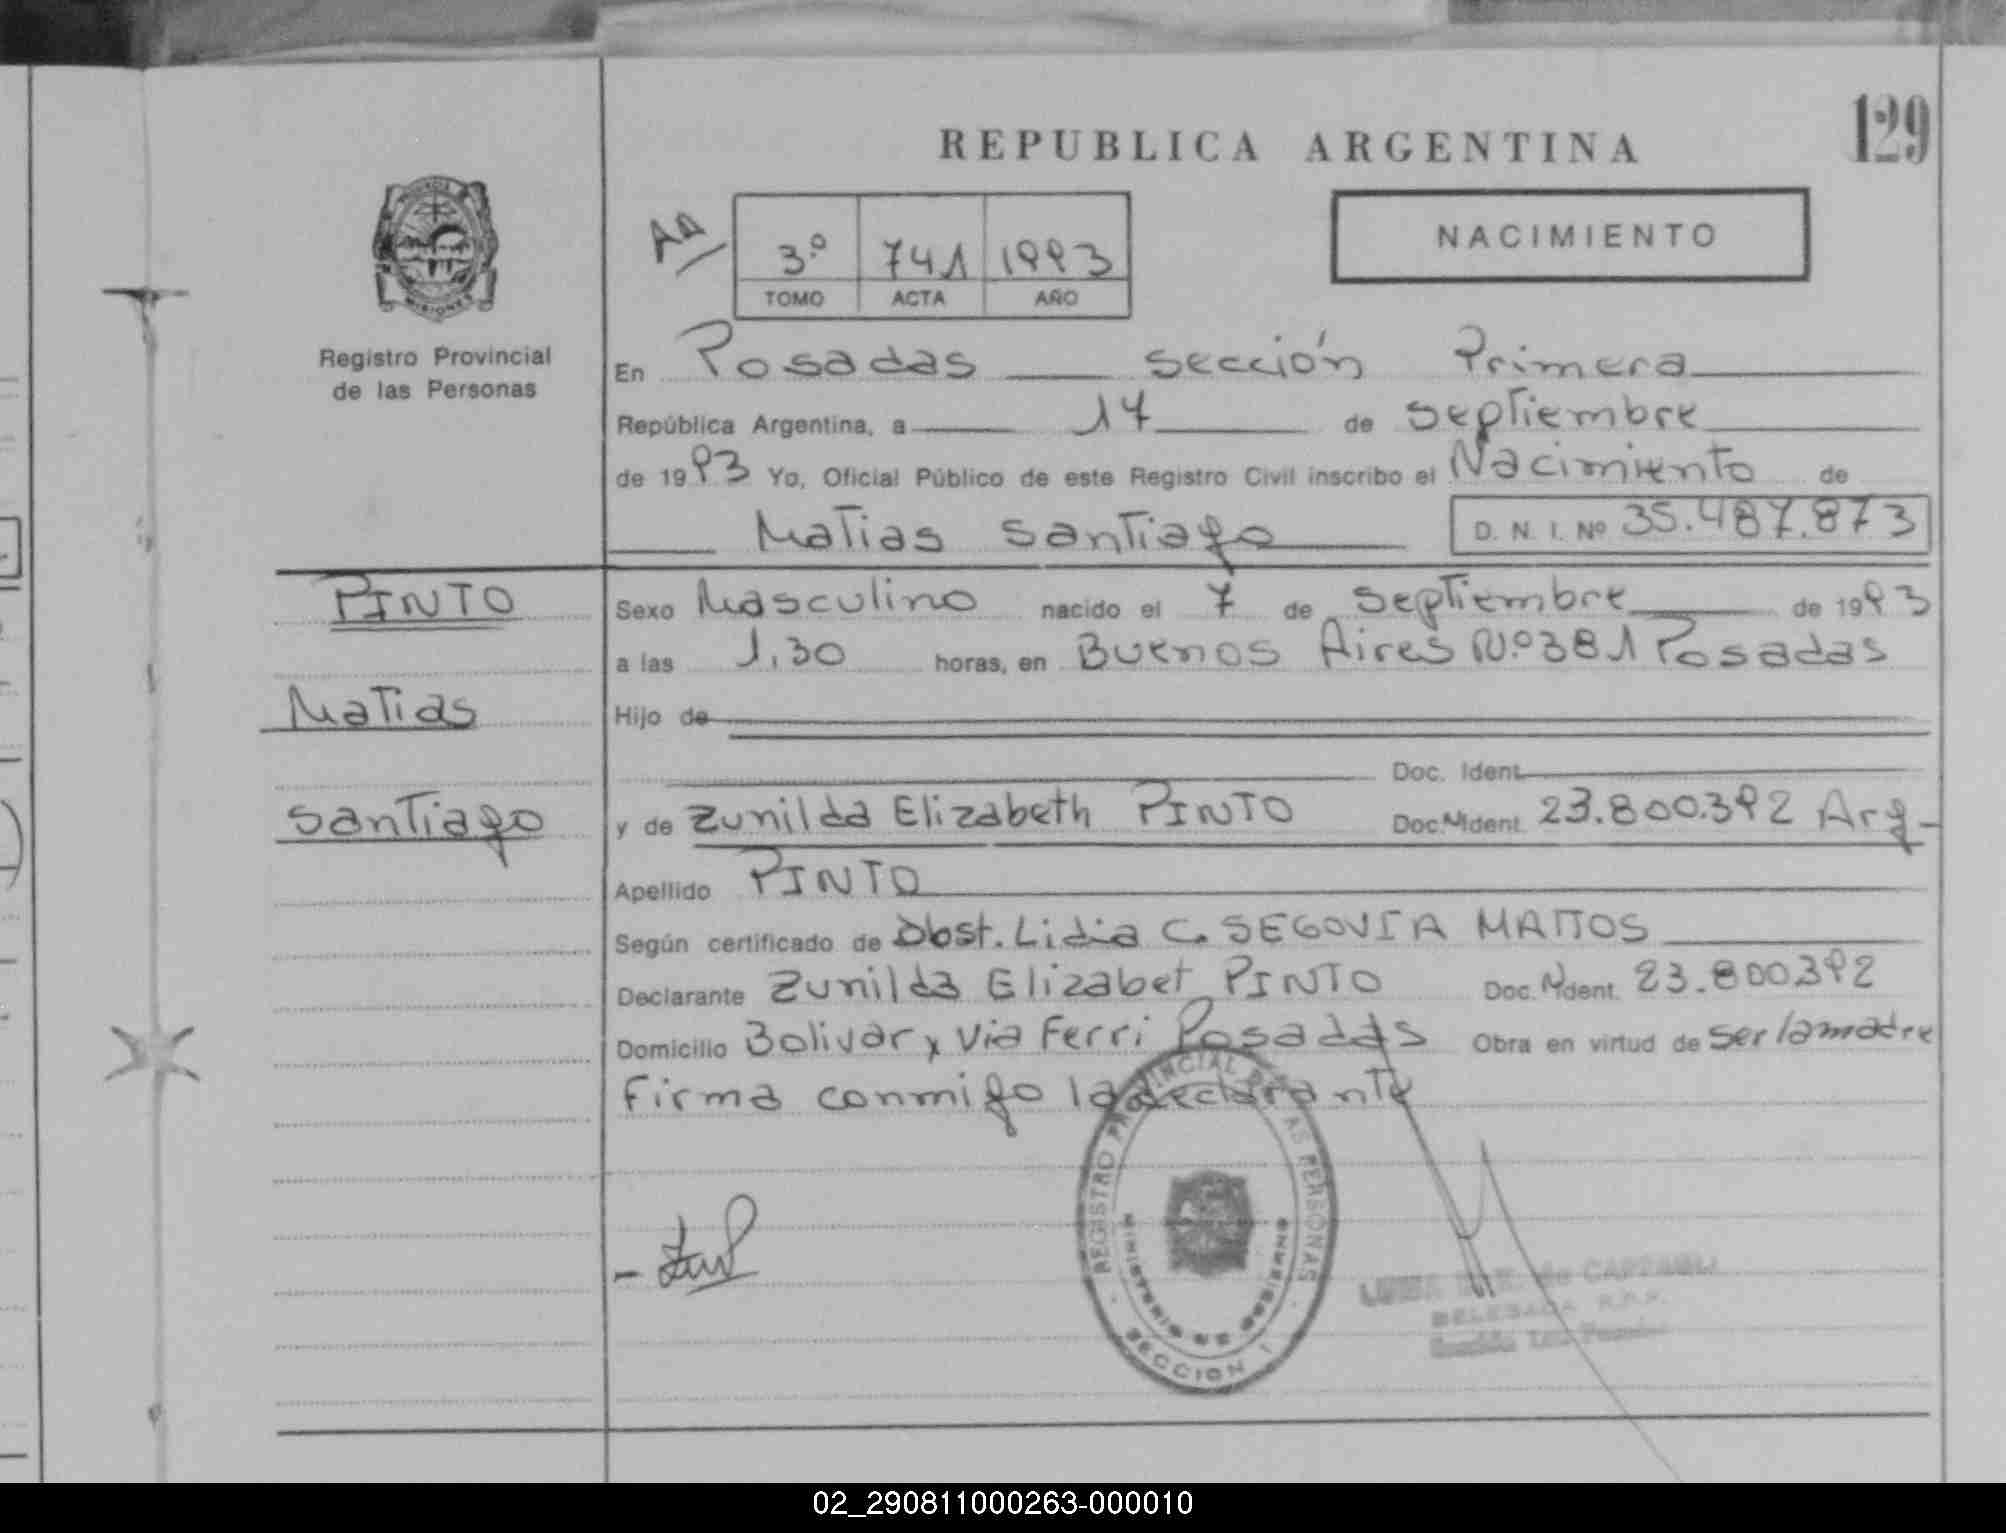 129
REPUBLICA ARGENTINA
NACIMIENTO
AA
3º 741 1993
TOMO ACTA AÑO
MISIONES
Registro Provincial
de las Personas
En Posadas sección Primera
República Argentina, a 17 de septiembre
de 1993 Yo, Oficial Público de este Registro Civil inscribo el Nacimiento de
Matias Santiago D. N. I. Nº 35.487.873
PINTO
Matias
Santiago
Sexo Masculino nacido el 7 de septiembre de 1993
a las 1,30 horas, en Buenos Aires Nº 381 Posadas
Hijo de
Doc. Ident.
y de Zunilda Elizabeth PINTO Doc. Ident. 23.800.392 Arg.
Apellido PINTO
Según certificado de Obst. Lidia C. SEGOVIA MATTOS
Declarante Zunilda Elizabet PINTO Doc. Ident. 23.800392
Domicilio Bolivar y Via Ferri Posadas Obra en virtud de ser la madre
Firma conmigo la declarante
REGISTRO PROVINCIAL DE LAS PERSONAS
MINISTERIO DE GOBIERNO
SECCION 1
de
DELEGADA R.P.P.
02_290811000263-000010